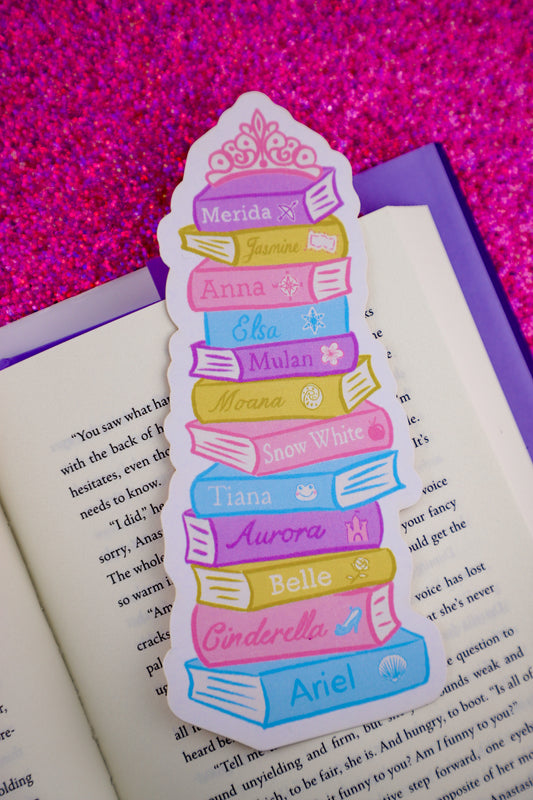 Merida
Jasmine
Anna
Elsa
Mulan
Moana
Snow White
Tiana
Aurora
Belle
Cinderella
Ariel
"You saw what
with the back of
hesitates, even
needs to know.
"I did,"
sorry,
The whole
so warm
"Am
cracks
all
heard
"Tell me
unyielding and firm, but
to be fair, she is. And hungry, to boot. "Is all of
it funny to you? Am I funny to you?"
step forward, one
opposite of her
It's
voice
your fancy
get the
voice has lost
she's never
question to
weak and
olding